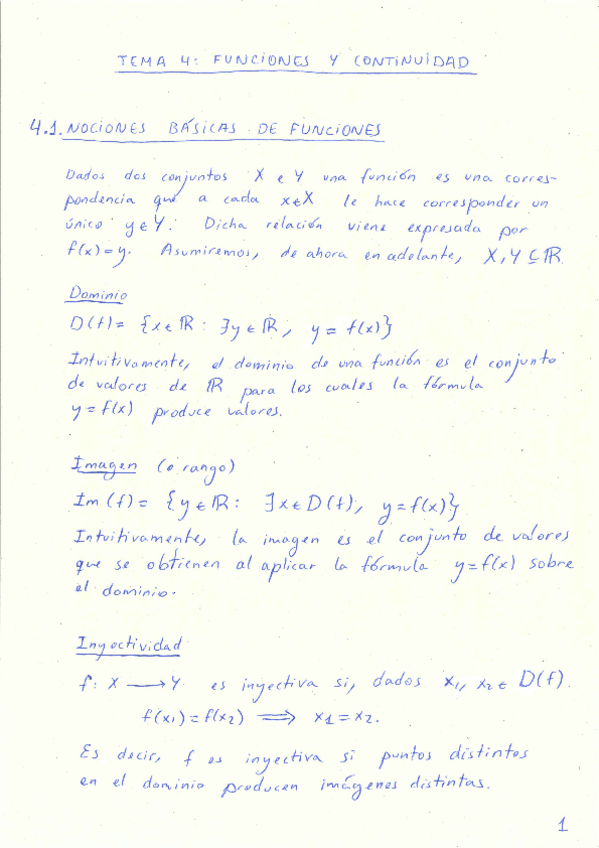 TEMA 4: FUNCIONES Y CONTINUIDAD
4.1. NOCIONES BÁSICAS DE FUNCIONES
Dados dos conjuntos X e Y una función es una corres-
pondencia que a cada x∈X le hace corresponder un
único y∈Y. Dicha relación viene expresada por
f(x)=y. Asumiremos, de ahora en adelante, X,Y⊆ℝ
Dominio
D(f)= {x∈ℝ: ∃y∈ℝ, y=f(x)}
Intuitivamente, el dominio de una función es el conjunto
de valores de ℝ para los cuales la fórmula
y=f(x) produce valores.
Imagen (o rango)
Im(f)= {y∈ℝ: ∃x∈D(f), y=f(x)}
Intuitivamente, la imagen es el conjunto de valores
que se obtienen al aplicar la fórmula y=f(x) sobre
el dominio.
Inyectividad
f: X ⟶ Y es inyectiva si, dados x₁, x₂∈D(f).
f(x₁)=f(x₂) ⟹ x₁=x₂.
Es decir, f es inyectiva si puntos distintos
en el dominio producen imágenes distintas.
1